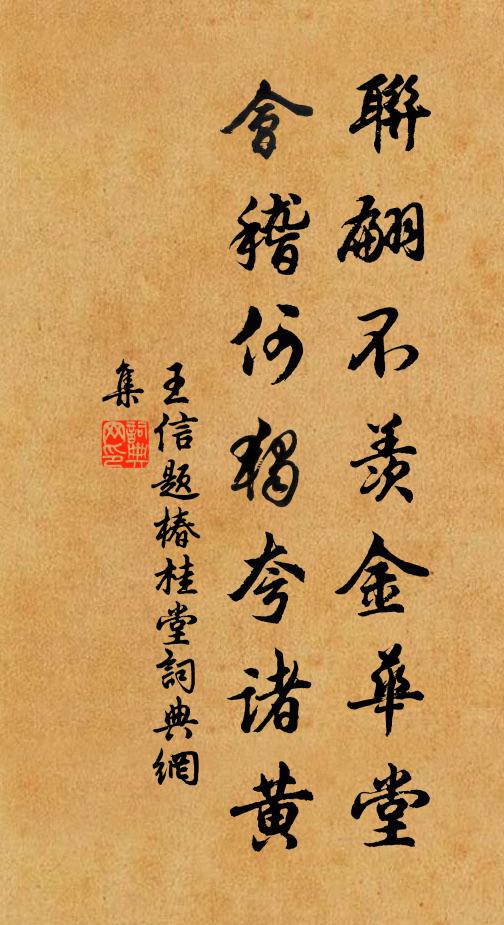 聯翩不羨金華堂
會稽何獨夸諸黄
王信題椿桂堂詞典網
集
詞典
网印